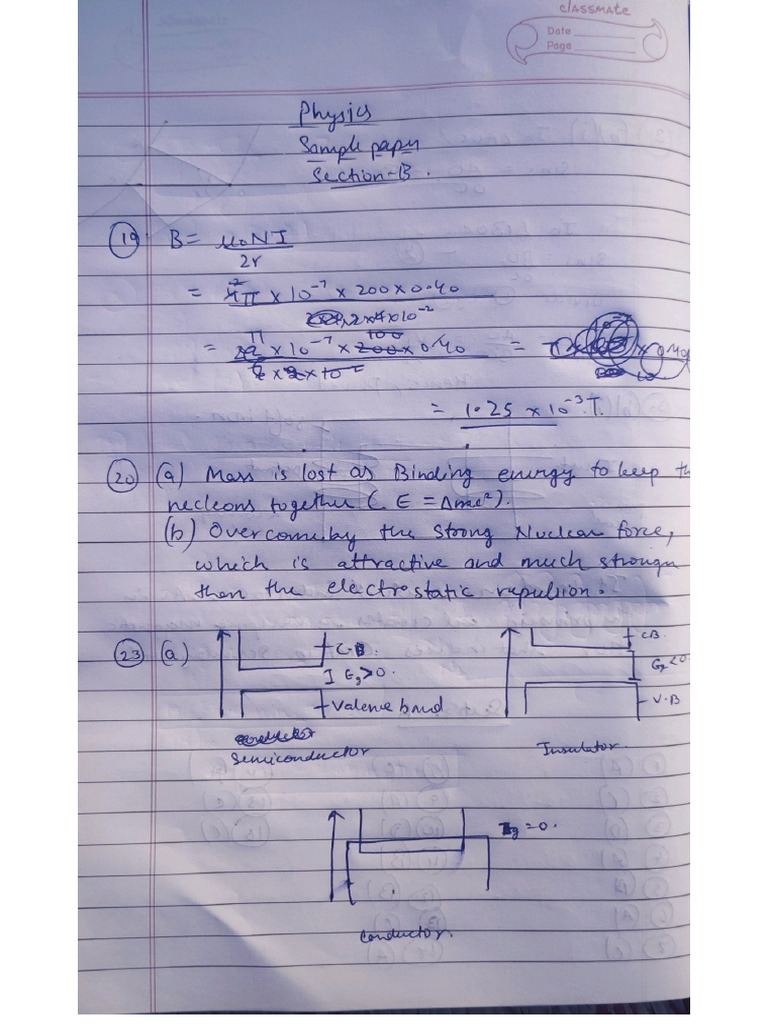 classmate
Date
Page
Physics
Sample paper
Section-B.
19 B = μ0NI
2r
= 4π × 10⁻⁷ × 200 × 0.40
2×4×10⁻²
= × 10⁻⁷ × 200 × 0.40 =
= 1.25 × 10⁻³ T.
20 (a) Mass is lost as Binding energy to keep th
necleons together ( E = Δmc²).
(b) Overcome by the strong Nuclear force,
which is attractive and much stronger
then the electrostatic repulsion.
23 (a)
C.B.
Eg>0.
Valence band
Semiconductor
CB.
Eg<0
V.B
Insulator.
Eg=0.
Conductor.